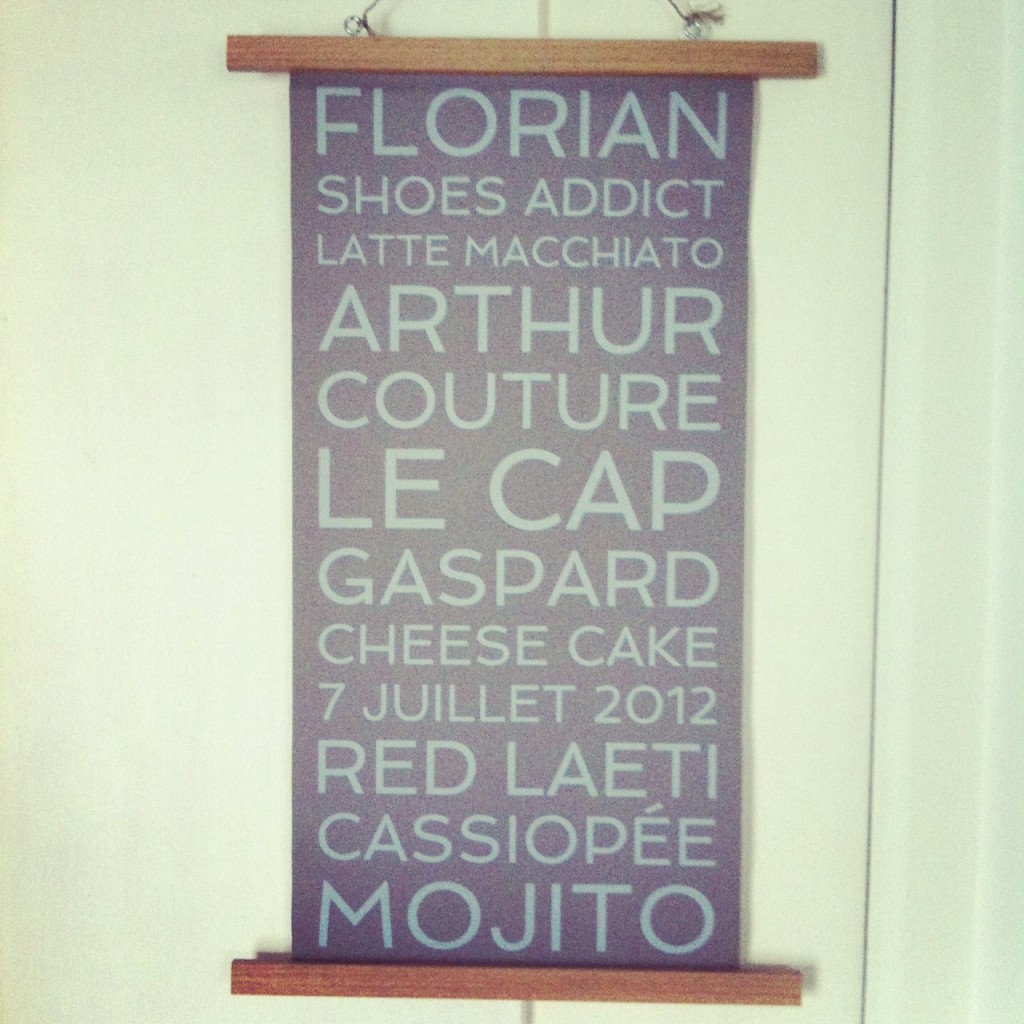 FLORIAN
SHOES ADDICT
LATTE MACCHIATO
ARTHUR
COUTURE
LE CAP
GASPARD
CHEESE CAKE
7 JUILLET 2012
RED LAETI
CASSIOPÉE
MOJITO